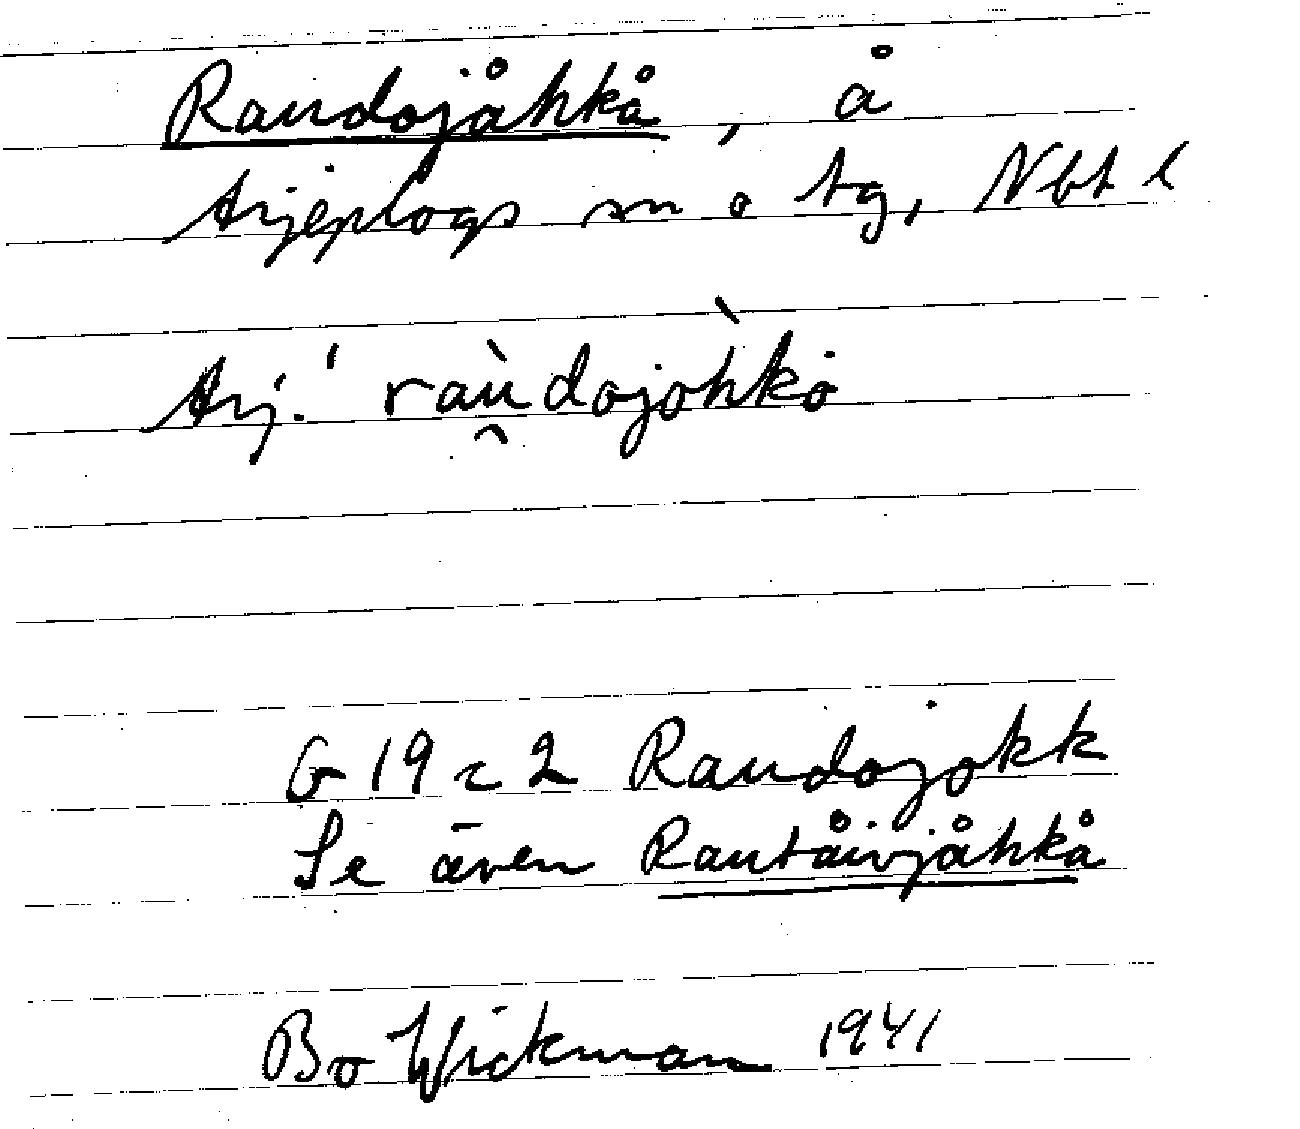 Raudojåhkå, å
Arjeplogs sn o tg, Nbt l
Arj. ' raùdojòhkȯ
G 19 c 2 Raudojokk
Se även Rautåivjåhkå
Bo Wickman 1941